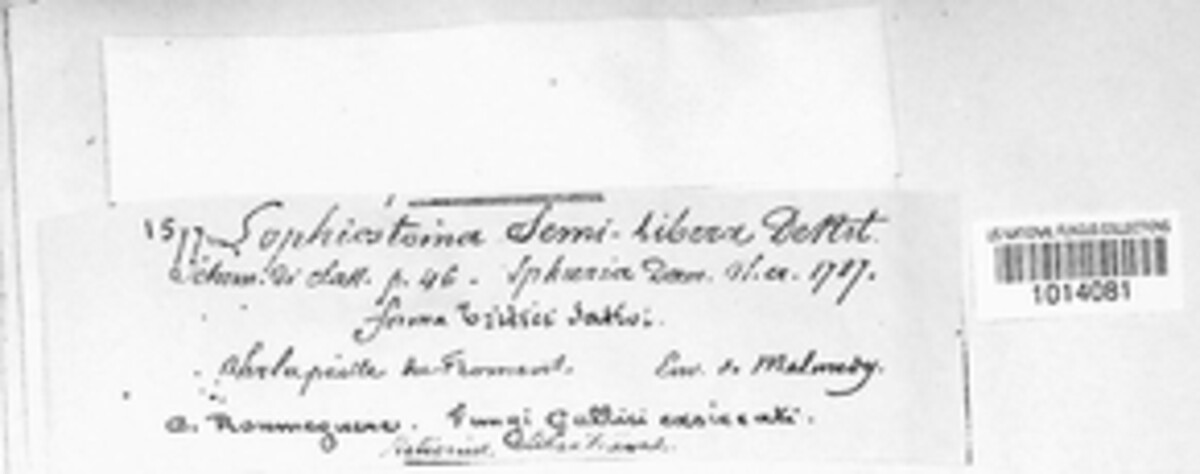 1577 Lophiostoma Semi-libera DeNot.
Schem. di class. p. 46. Sphaeria Desm. Pl. ex. 1787.
forma Tritici
du Froment. Env. de Malmedy.
C. Roumeguere. Fungi Gallici exsiccati.
US NATIONAL FUNGUS COLLECTIONS
1014081